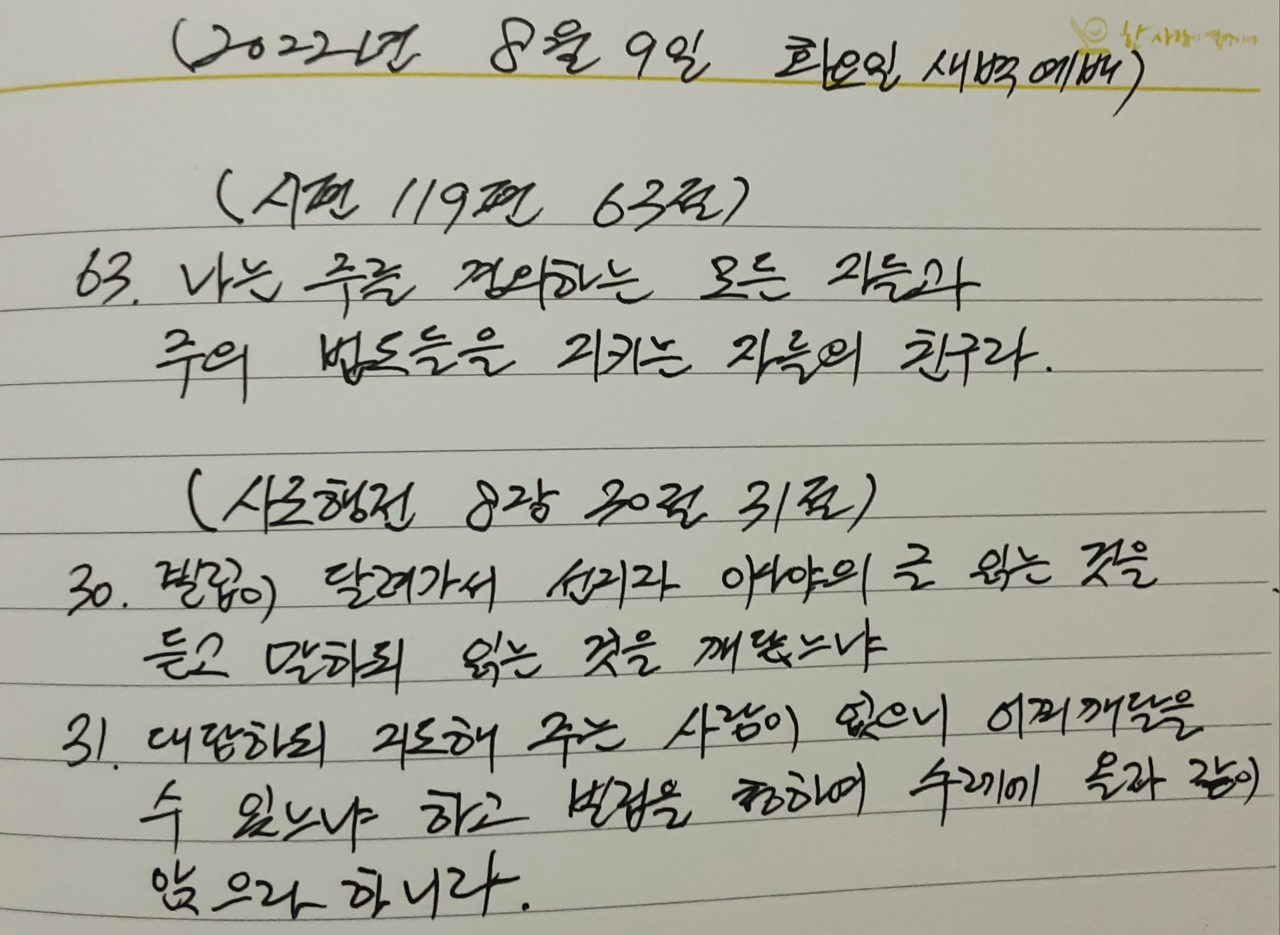 한 사람이
(2022년 8월 9일 화요일 새벽예배)
(시편 119편 63절)
63. 나는 주를 경외하는 모든 자들과
주의 법도들을 지키는 자들의 친구라.
(사도행전 8장 30절 31절)
30. 빌립이 달려가서 선지자 이사야의 글 읽는 것을
듣고 말하되 읽는 것을 깨닫느냐
31. 대답하되 지도해 주는 사람이 없으니 어찌깨달을
수 있느냐 하고 빌립을 청하여 수레에 올라 같이
앉으라 하니라.